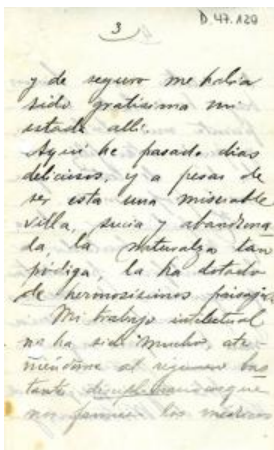 3
D.47.120
y de seguro me habia
sido gratisima mi
estada alli.
Aquí he pasado dias
deliciosos, y a pesar de
ser esta una miserable
villa, sucia y abandona
da la naturaleza tan
pródiga, la ha dotado
de hermosisimos paisajes
Mi trabajo intelectual
no ha sido mucho, ate
niéndome al regimen bas
tante
los medicos